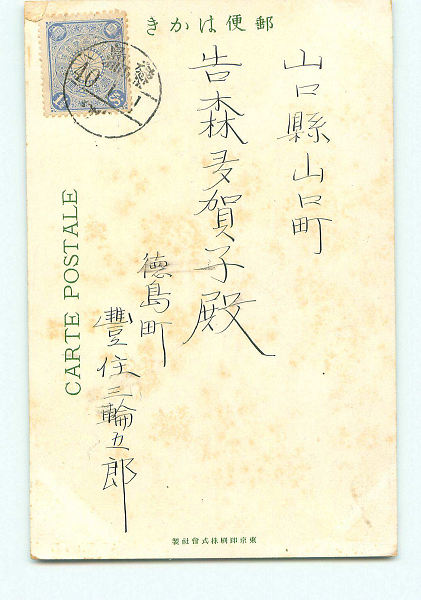 郵便はかき
山口縣山口町
吉森多賀子殿
徳島町
豐住三輪五郎
CARTE POSTALE
東京印刷株式會社製